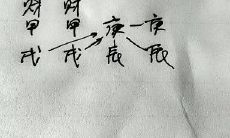 财 财
甲 甲 庚 庚
戌 戌 辰 辰